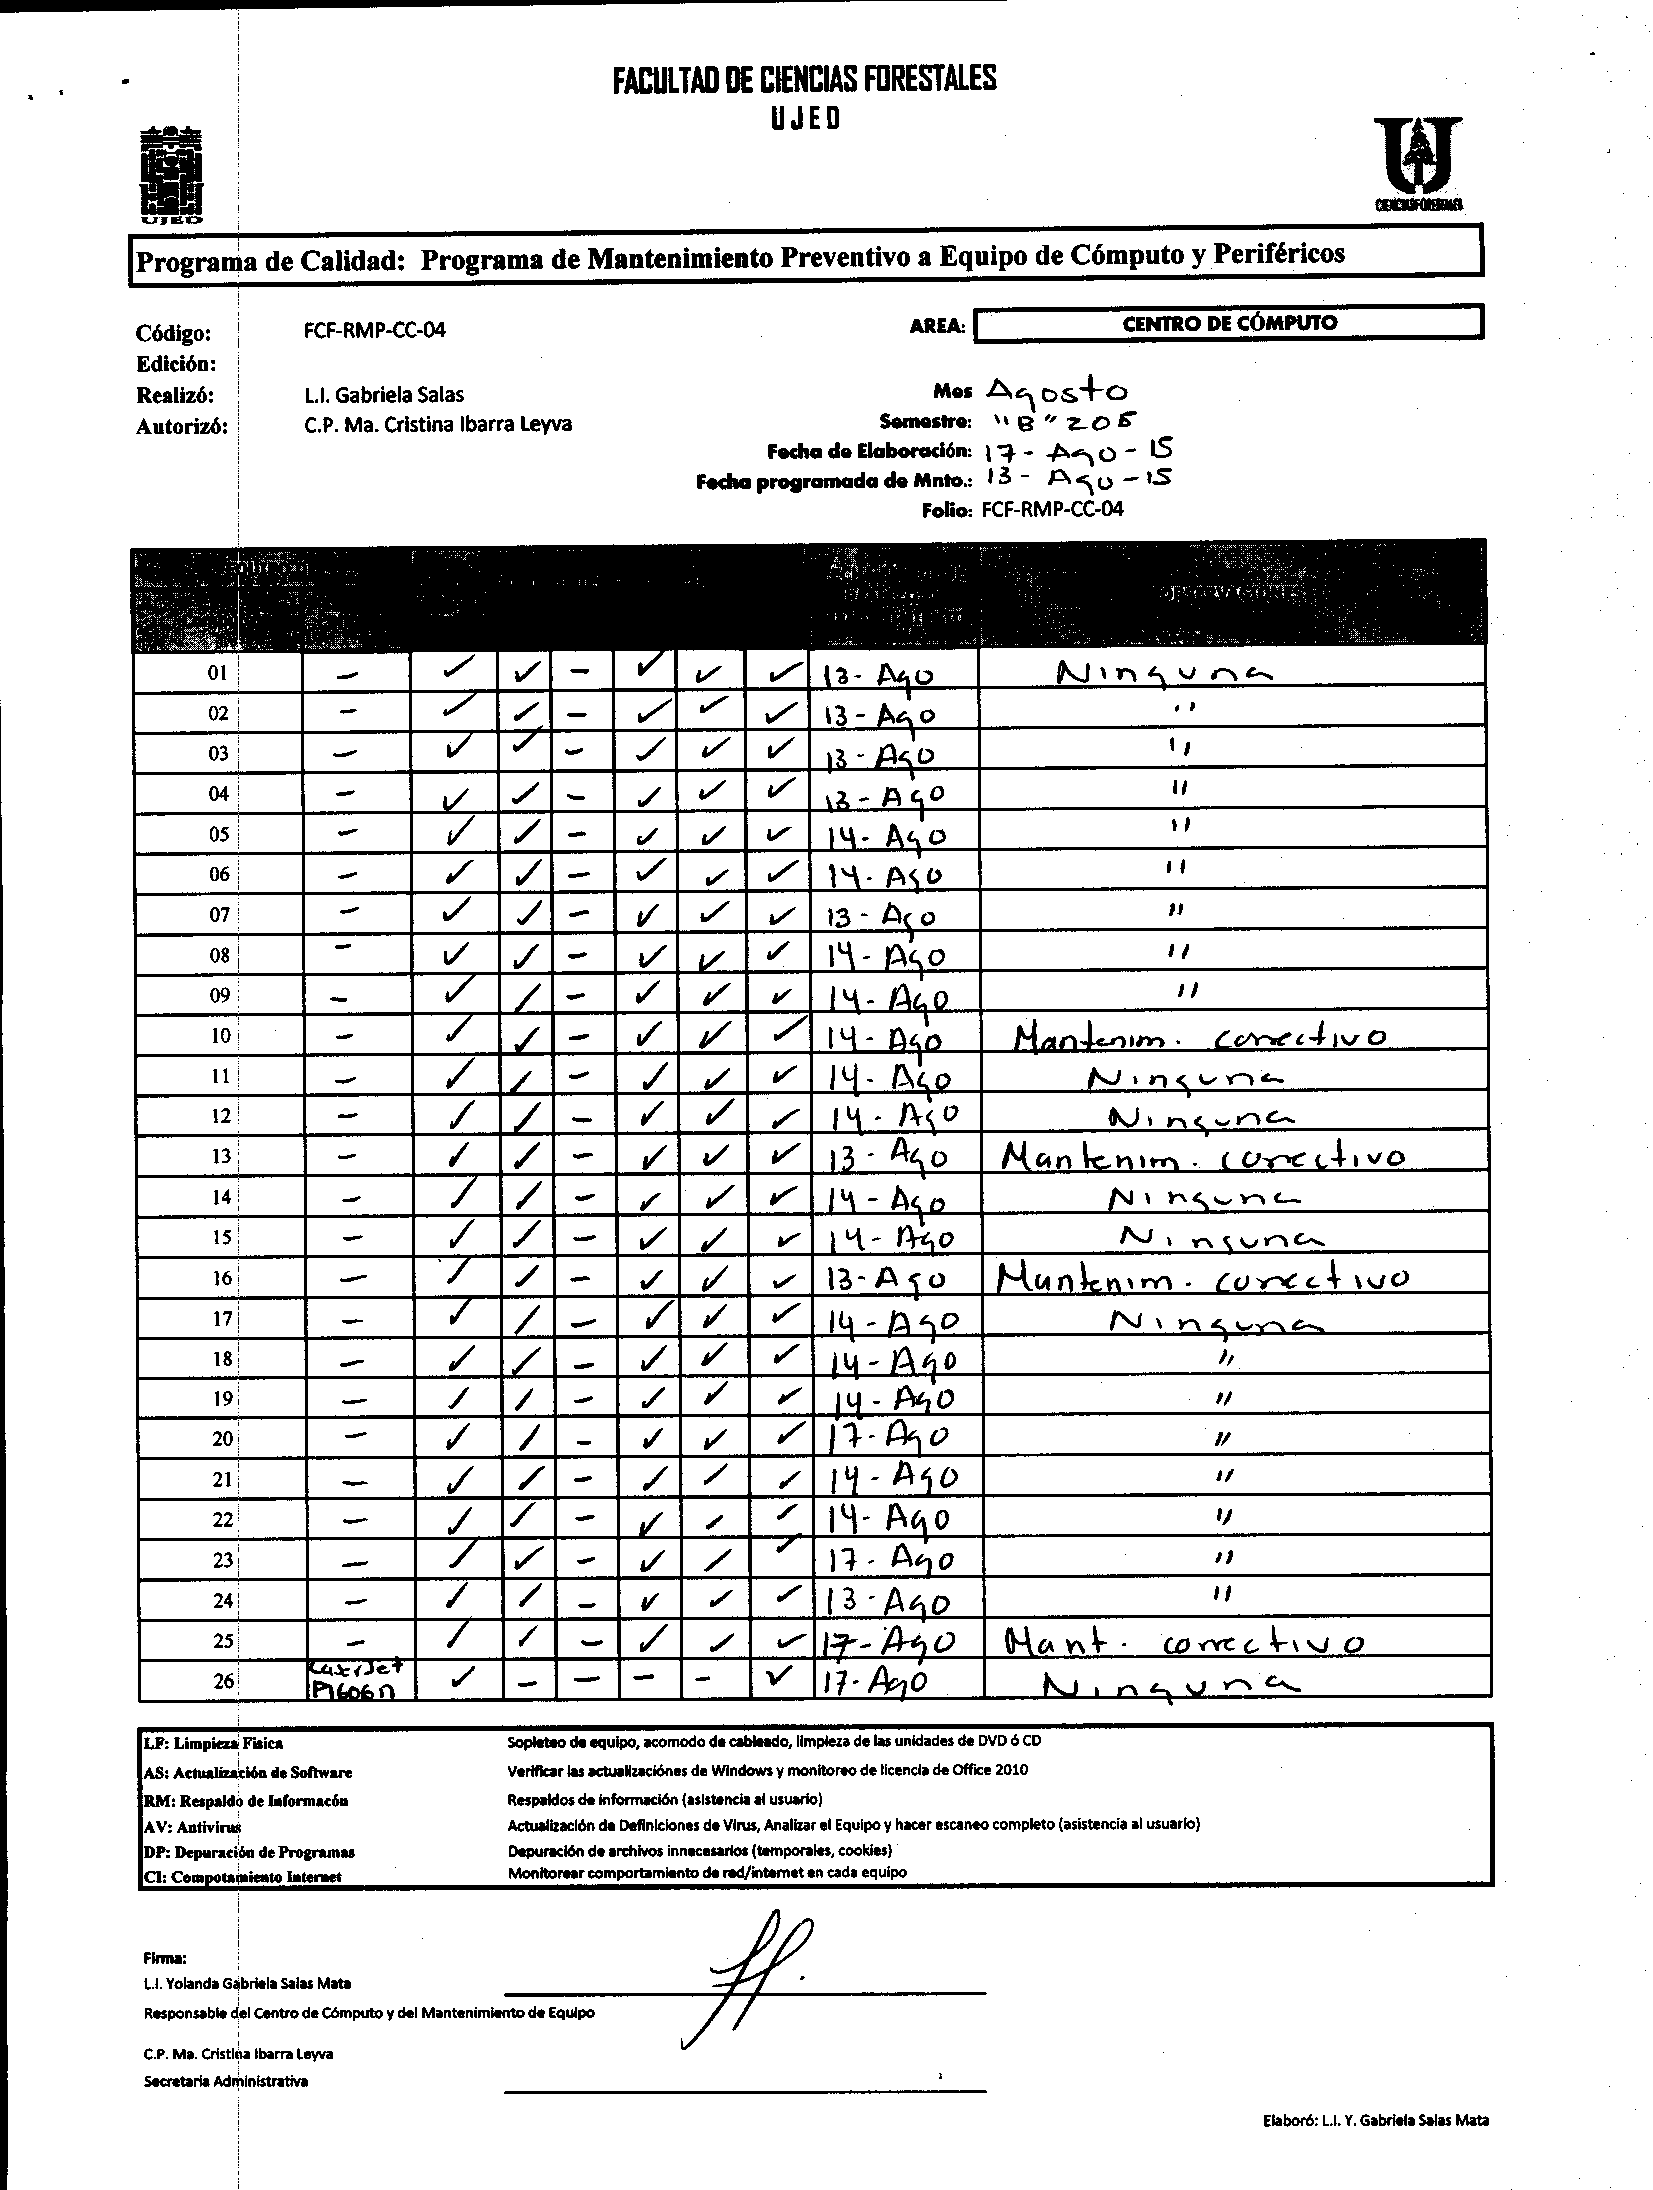 FACULTAD DE CIENCIAS FORESTALES
UJED
UJED
CIENCIAS FORESTALES
Programa de Calidad: Programa de Mantenimiento Preventivo a Equipo de Cómputo y Periféricos
Código: FCF-RMP-CC-04
AREA: CENTRO DE CÓMPUTO
Edición:
Realizó: L.I. Gabriela Salas
Mes Agosto
Autorizó: C.P. Ma. Cristina Ibarra Leyva
Semestre: "B" 205
Fecha de Elaboración: 17 - Ago - 15
Fecha programada de Mnto.: 13 - Ago - 15
Folio: FCF-RMP-CC-04
OBSERVACIONES
01 - ✓ ✓ - ✓ ✓ ✓ 13- Ago Ninguna
02 - ✓ ✓ - ✓ ✓ ✓ 13 - Ago "
03 - ✓ ✓ - ✓ ✓ ✓ 13 - Ago "
04 - ✓ ✓ - ✓ ✓ ✓ 13 - Ago "
05 - ✓ ✓ - ✓ ✓ ✓ 14 - Ago "
06 - ✓ ✓ - ✓ ✓ ✓ 14 - Ago "
07 - ✓ ✓ - ✓ ✓ ✓ 13 - Ago "
08 - ✓ ✓ - ✓ ✓ ✓ 14 - Ago "
09 - ✓ ✓ - ✓ ✓ ✓ 14 - Ago "
10 - ✓ ✓ - ✓ ✓ ✓ 14 - Ago Mantenim. correctivo
11 - ✓ ✓ - ✓ ✓ ✓ 14 - Ago Ninguna
12 - ✓ ✓ - ✓ ✓ ✓ 14 - Ago Ninguna
13 - ✓ ✓ - ✓ ✓ ✓ 13 - Ago Mantenim. correctivo
14 - ✓ ✓ - ✓ ✓ ✓ 14 - Ago Ninguna
15 - ✓ ✓ - ✓ ✓ ✓ 14 - Ago Ninguna
16 - ✓ ✓ - ✓ ✓ ✓ 13 - Ago Mantenim. correctivo
17 - ✓ ✓ - ✓ ✓ ✓ 14 - Ago Ninguna
18 - ✓ ✓ - ✓ ✓ ✓ 14 - Ago "
19 - ✓ ✓ - ✓ ✓ ✓ 14 - Ago "
20 - ✓ ✓ - ✓ ✓ ✓ 17 - Ago "
21 - ✓ ✓ - ✓ ✓ ✓ 14 - Ago "
22 - ✓ ✓ - ✓ ✓ ✓ 14 - Ago "
23 - ✓ ✓ - ✓ ✓ ✓ 17 - Ago "
24 - ✓ ✓ - ✓ ✓ ✓ 13 - Ago "
25 - ✓ ✓ - ✓ ✓ ✓ 17 - Ago Mant. correctivo
26 LaserJet P1606n ✓ - - - - ✓ 17 - Ago Ninguna
LF: Limpieza Fisica Sopleteo de equipo, acomodo de cableado, limpieza de las unidades de DVD ó CD
AS: Actualización de Software Verificar las actualizaciónes de Windows y monitoreo de licencia de Office 2010
RM: Respaldo de Informacón Respaldos de información (asistencia al usuario)
AV: Antivirus Actualización de Definiciones de Virus, Analizar el Equipo y hacer escaneo completo (asistencia al usuario)
DP: Depuración de Programas Depuración de archivos innecesarios (temporales, cookies)
CI: Compotamiento Internet Monitorear comportamiento de red/internet en cada equipo
Firma:
L.I. Yolanda Gabriela Salas Mata
Responsable del Centro de Cómputo y del Mantenimiento de Equipo
C.P. Ma. Cristina Ibarra Leyva
Secretaria Administrativa
Elaboró: L.I. Y. Gabriela Salas Mata